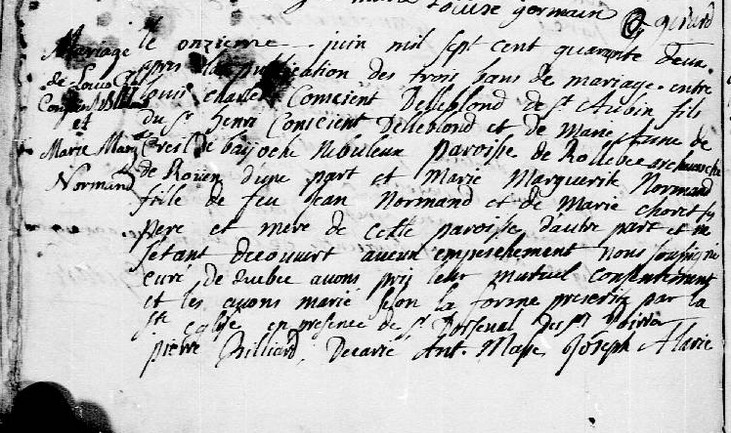 Marie Louise germain
gerard
Mariage
de Louis
et
Marie Marg
Normand
le onzieme juin mil sept cent quarante deux
apres la publication des trois bans de mariage entre
Louis Charles Conscient Delleblond de St Aubin fils
du Sr henri Conscient Delleblond et de Marie Anne de
paroisse de archeveche
de Rouen d'une part et Marie Marguerite Normand
fille de feu Jean Normand et de Marie Choret ses
pere et mere de cette paroisse d'autre part et ne
setant decouvert aucun empeschement nous soussigné
curé de quebec avons pris leur mutuel consentement
et les avons marié selon la forme prescrite par la
ste eglise en presence de Sr
pierre Decarié, Ant. Joseph Alarie